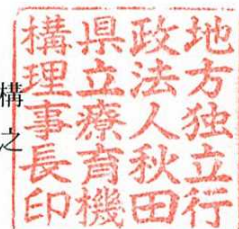 構
之
地方独立行
政法人秋田
県立療育機
構理事長印